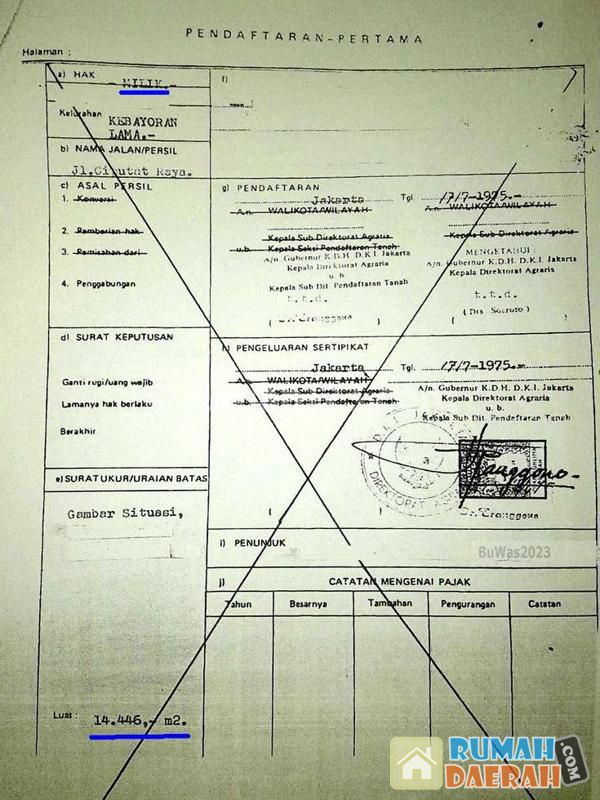 PENDAFTARAN-PERTAMA
Halaman :
a) HAK
- MILIK.-
Kelurahan KEBAYORAN
LAMA.-
b) NAMA JALAN/PERSIL
Jl.Ciputat Raya.
c) ASAL PERSIL
1. Konversi
2. Pemberian hak
3. Pemisahan dari
4. Penggabungan
d) SURAT KEPUTUSAN
Ganti rugi/uang wajib
Lamanya hak berlaku
Berakhir
e) SURAT UKUR/URAIAN BATAS
Gambar Situasi,
Luas : 14.446,- m2.
f)
g) PENDAFTARAN
Jakarta Tgl. 17/7-1975.-
A.n. WALIKOTA/WILAYAH A.n. WALIKOTA/WILAYAH
Kepala Sub Direktorat Agraria Kepala Sub Direktorat Agraria
u.b. Kepala Seksi Pendaftaran Tanah
MENGETAHUI :
A/n. Gubernur K.D.H. D.K.I. Jakarta A/n. Gubernur K.D.H. D.K.I. Jakarta
Kepala Direktorat Agraria Kepala Direktorat Agraria
u. b.
Kepala Sub Dit. Pendaftaran Tanah
t.t.d. t.t.d.
( Drs. Soeroto )
h) PENGELUARAN SERTIPIKAT
Jakarta Tgl. 17/7-1975.-
A.n. WALIKOTA/WILAYAH
Kepala Sub Direktorat Agraria
u.b. Kepala Seksi Pendaftaran Tanah
A/n. Gubernur K.D.H. D.K.I. Jakarta
Kepala Direktorat Agraria
u. b.
Kepala Sub Dit. Pendaftaran Tanah
i) PENUNJUK
BuWas2023
j) CATATAN MENGENAI PAJAK
Tahun Besarnya Tambahan Pengurangan Catatan
RUMAH
DAERAH
.COM